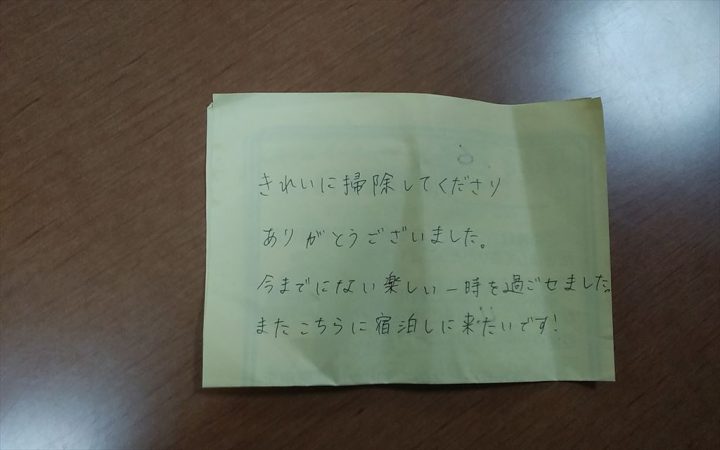 きれいに掃除してくださり
ありがとうございました。
今までにない楽しい一時を過ごせました。
またこちらに宿泊しに来たいです!